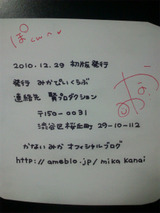 ぽcuん
2010.12.29 初版発行
発行 みかでぃくらぶ
連絡先 賢プロダクション
〒150-0031
渋谷区桜丘町 29-10-112
かないみか オフィシャルブログ
http://ameblo.jp/mika kanai